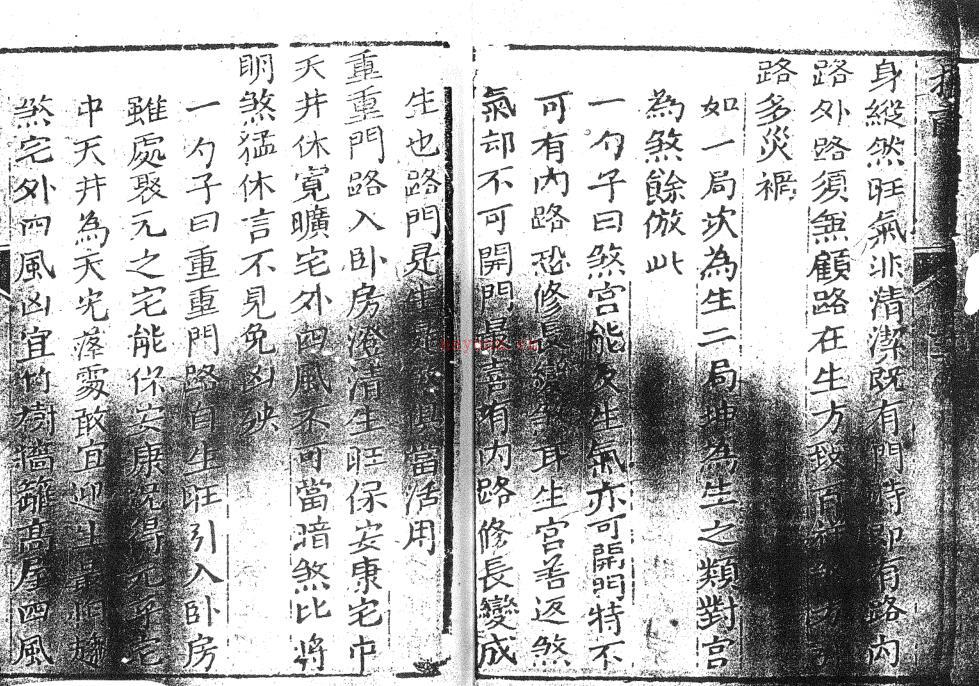 身縱然旺氣非清潔既有門時即有路內
路外路須無顧路在生方致百祥煞方引
路多災禍
如一局坎為生二局坤為生之類對宮
為煞餘倣此
一勺子曰煞宮能反生氣亦可開門特不
可有內路恐修長變煞耳生宮善返煞
氣却不可開門最喜有內路修長變成
生也路門是當活用
重重門路入卧房澄清生旺保安康宅中
天井休寬曠宅外凹風不可當暗煞比將
明煞猛休言不見免凶殃
一勺子曰重重門路自生旺引入卧房
雖處衰元之宅能保安康況得元乎宅
中天井為天光落處敢宜迎生
煞宅外凹風凶宜竹樹牆籬高屋凹風